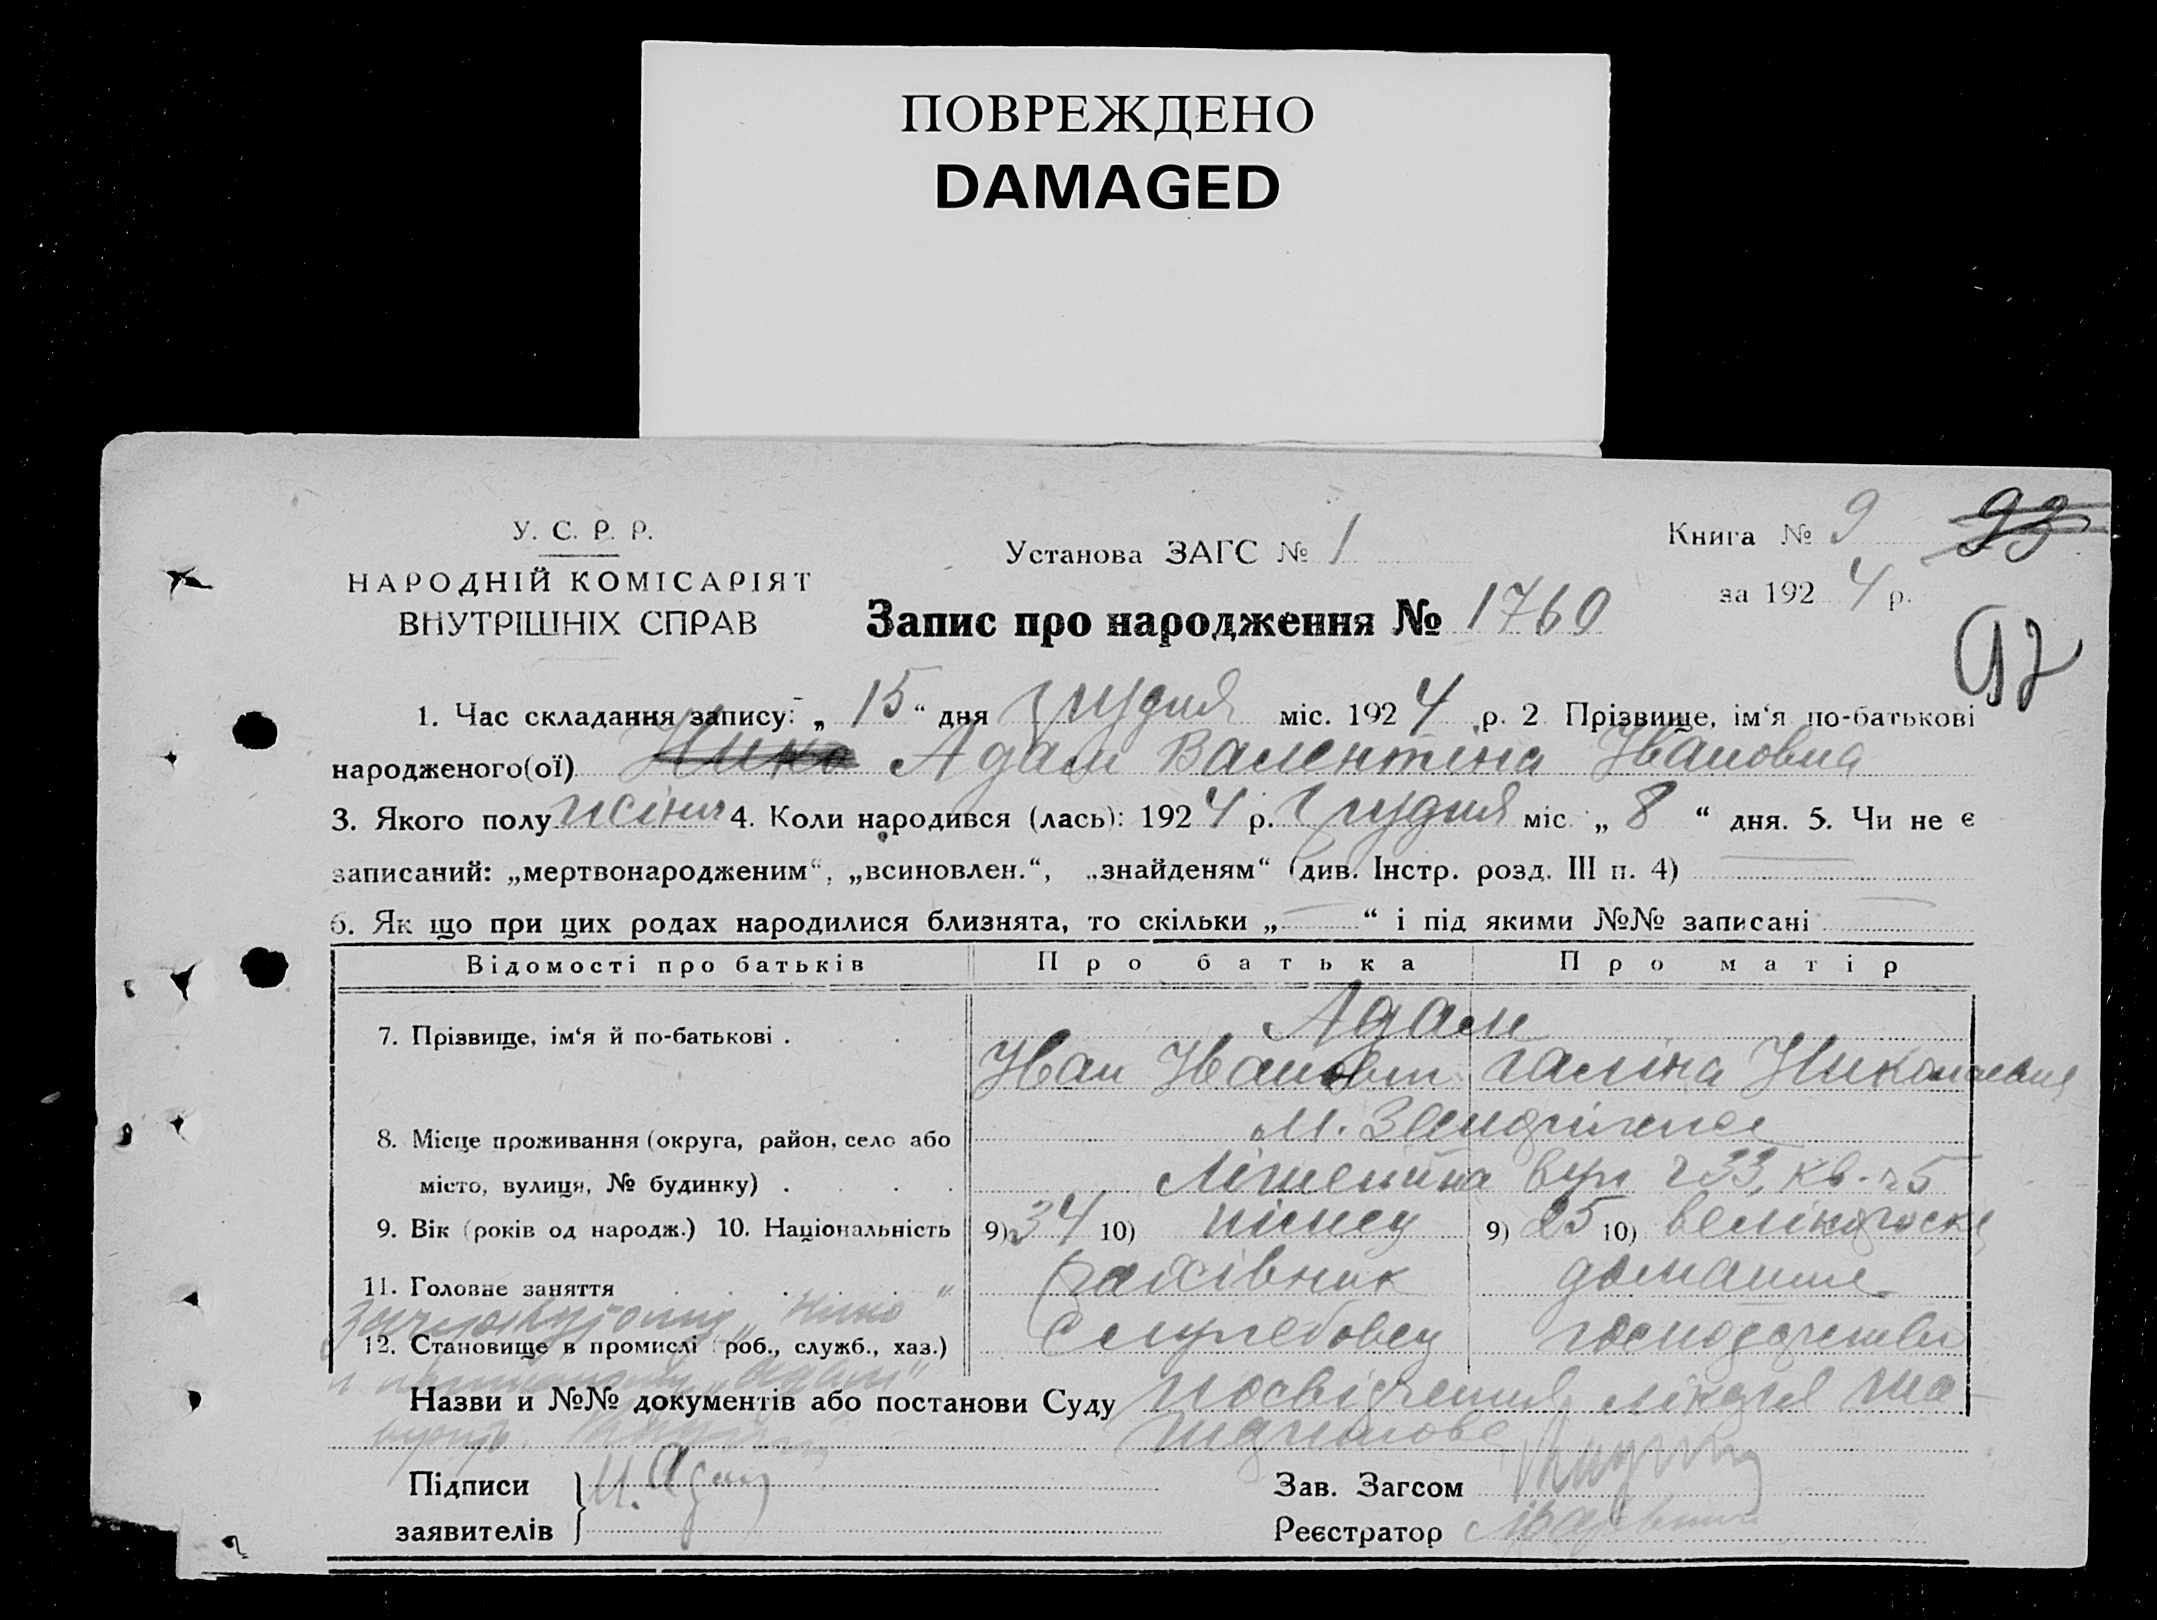 ПОВРЕЖДЕНО
DAMAGED
У. С. Р. Р.
НАРОДНІЙ КОМІСАРІЯТ
ВНУТРІШНІХ СПРАВ
Установа ЗАГС № 1
Книга № 9 93
за 1924 р.
Запис про народження № 1760
92
1. Час складання запису: „ 15 “ дня грудня міс. 1924 р. 2 Прізвище, ім‘я по-батькові
народженого(ої) Нико Адам Валентіна Івановна
3. Якого полу жіноч 4. Коли народився (лась): 1924 р. грудня міс. „ 8 “ дня. 5. Чи не є
записаний: „мертвонародженим“, „всиновлен.“, „знайденям“ (див. Інстр. розд. III п. 4)
6. Як що при цих родах народилися близнята, то скільки „ “ і під якими №№ записані
Відомості про батьків Про батька Про матір
Адам
7. Прізвище, ім‘я й по-батькові .
Іван Іванович Галіна Николаевна
8. Місце проживання (округа, район, село або
місто, вулиця, № будинку) . вул ч 33, кв. ч 5
9. Вік (років од народж.) 10. Національність 9) 34 10) німец 9) 25 10) великороска
11. Головне заняття фахівник домашнє
„Нико“
12. Становище в промислі (роб., служб., хаз.) службовец господарство
„Адам“
Назви и №№ документів або постанови Суду посвідчення лікаря
Підписи И. Адам Зав. Загсом
заявителів Реєстратор